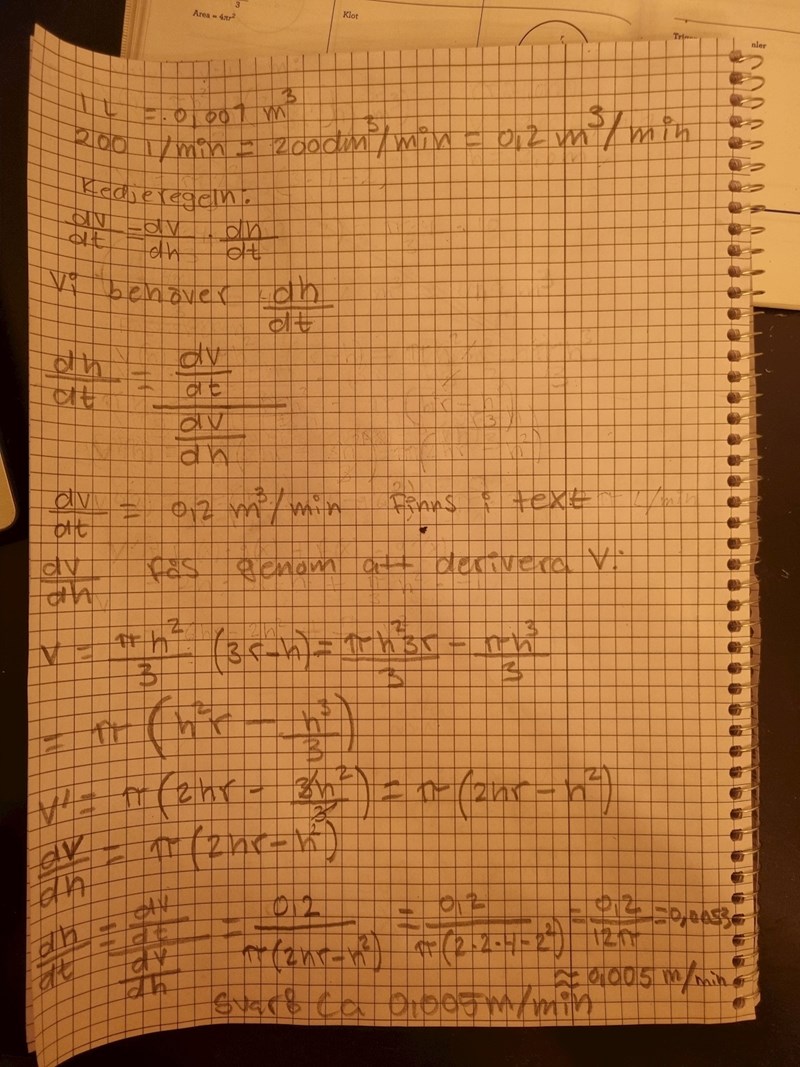 3
Area = 4πr²
Klot
r
1 L = 0,001 m³
200 l/min = 200dm³/min = 0,2 m³/min
Kedjeregeln:
dv/dt = dv/dh · dh/dt
Vi behöver dh/dt
dh/dt = (dv/dt)/(dv/dh)
dv/dt = 0,2 m³/min Finns i text
dv/dh fås genom att derivera V:
V = πh²/3 (3r-h) = πh²3r/3 - πh³/3
= π (h²r - h³/3)
V' = π(2hr - 3h²/3) = π(2hr - h²)
dv/dh = π(2hr - h²)
dh/dt = (dv/dt)/(dv/dh) = 0,2/π(2hr-h²) = 0,2/π(2·2·4-2²) = 0,2/12π = 0,0053
≈ 0,005 m/min
Svar: Ca 0,005 m/min